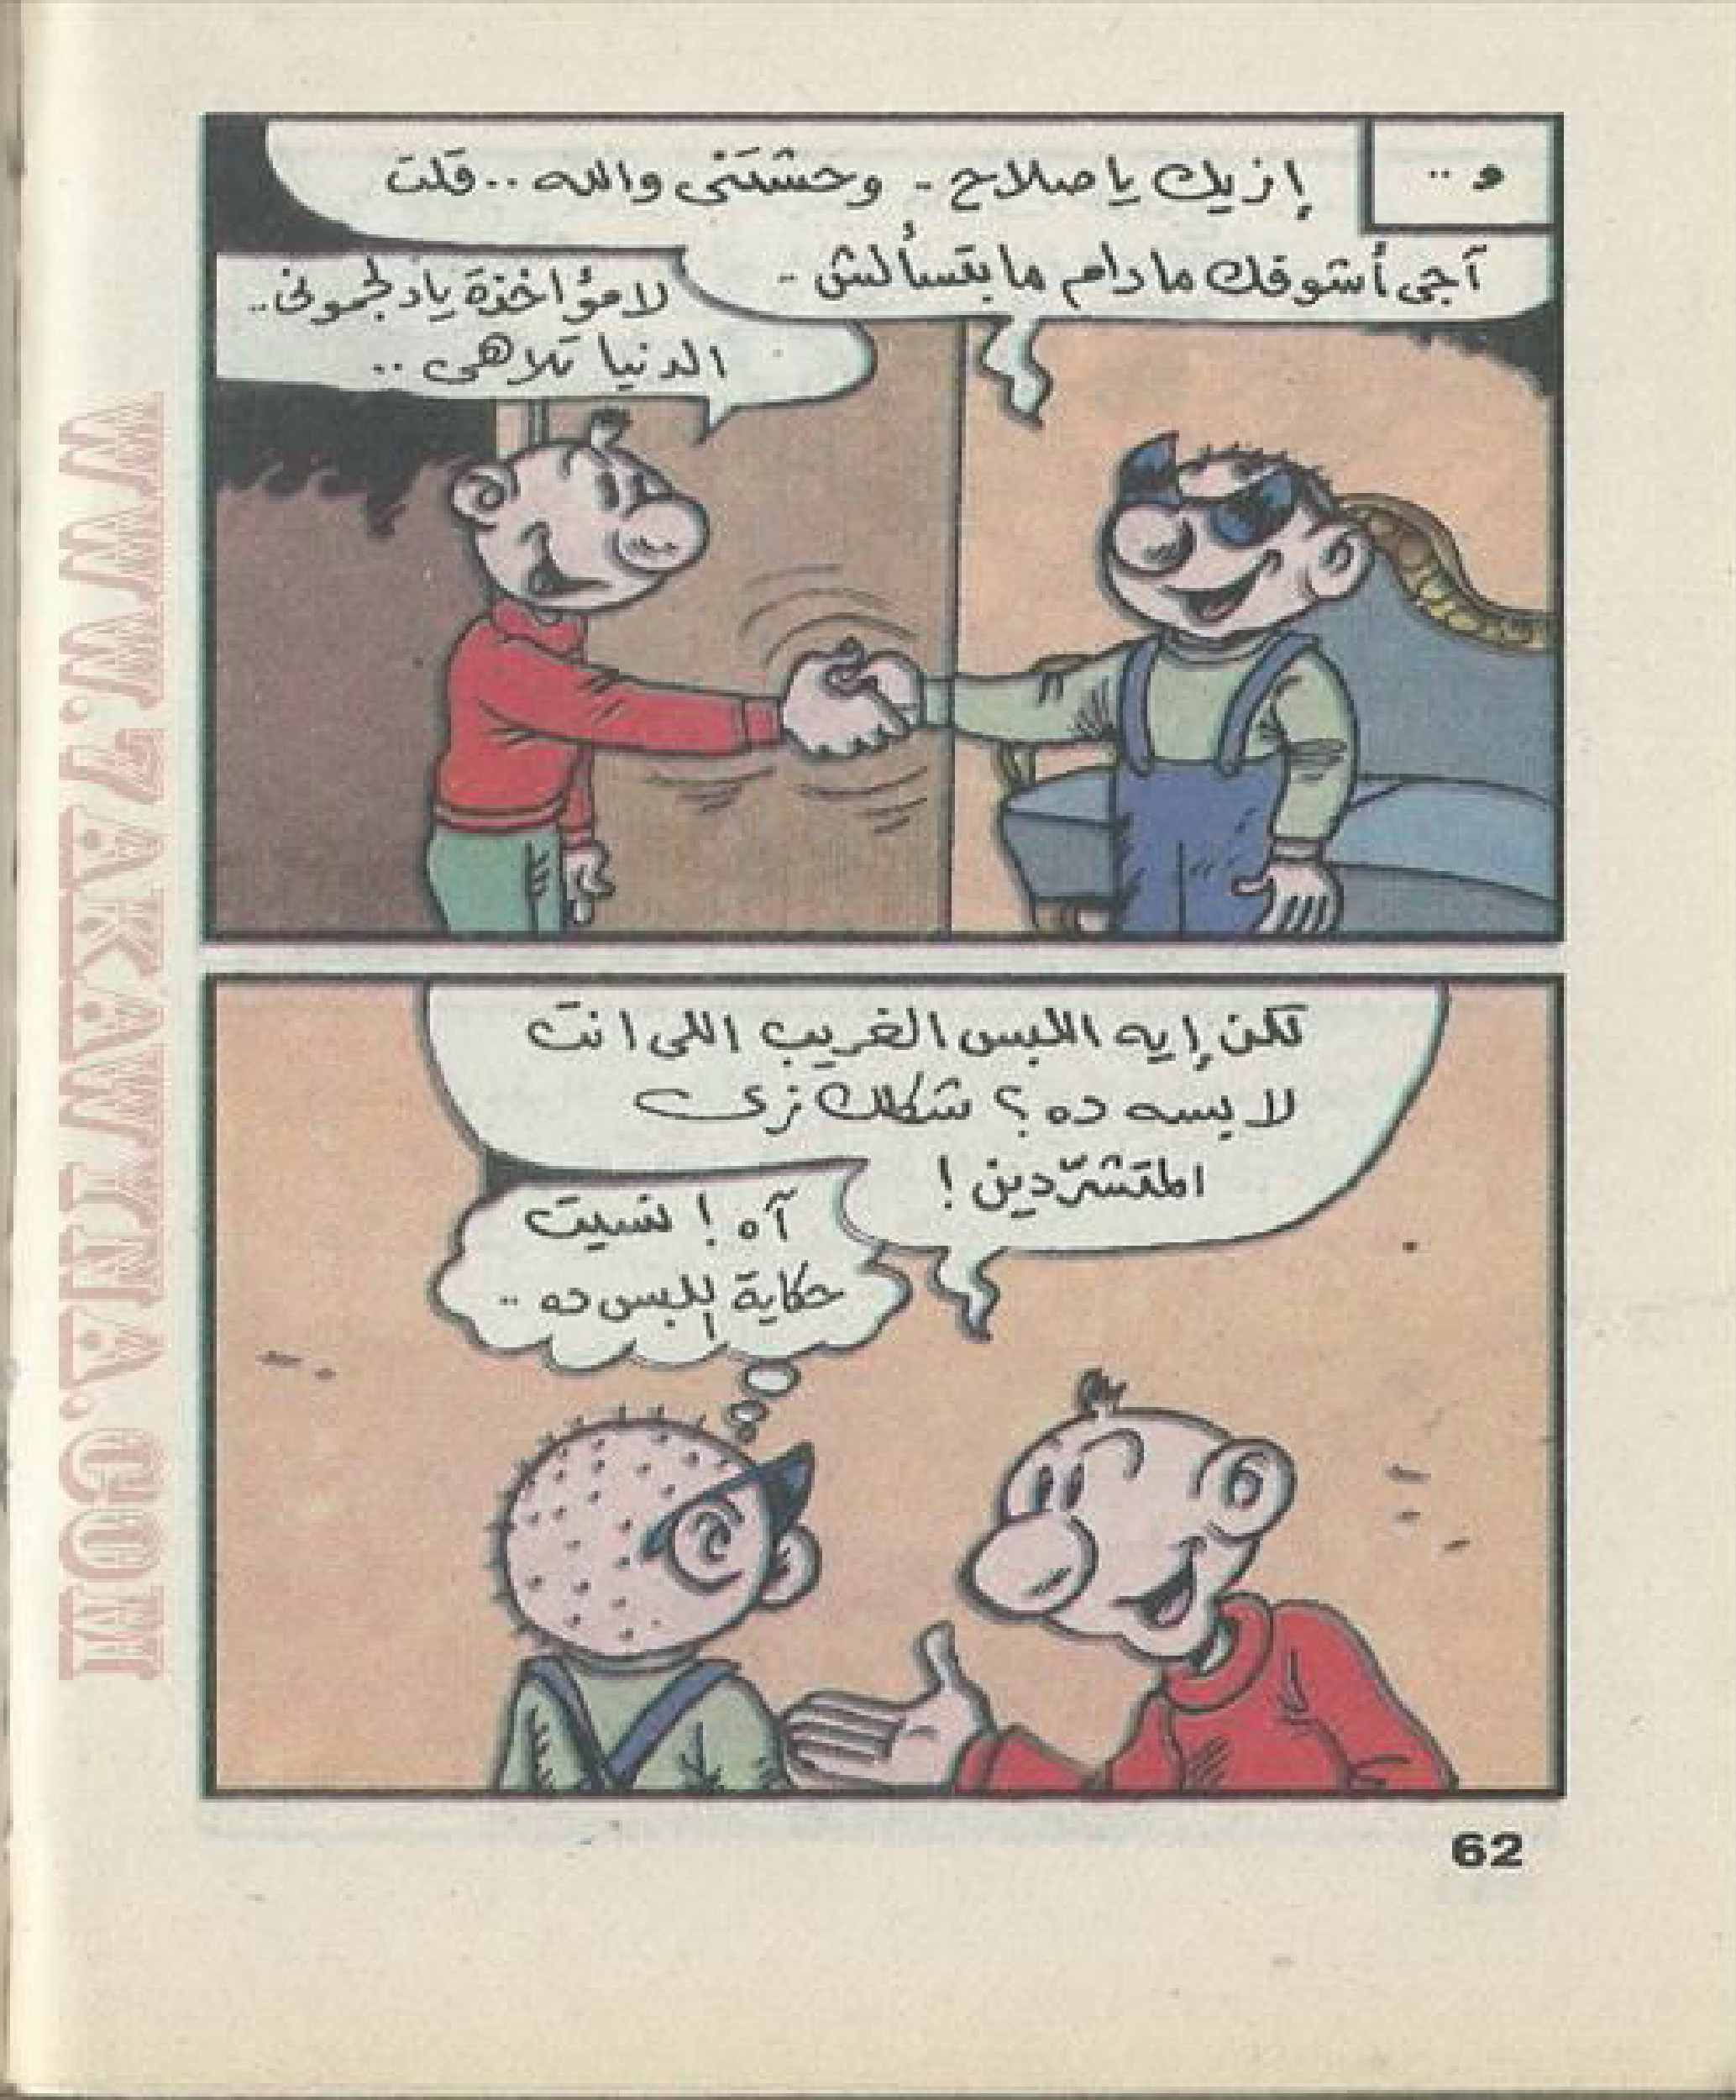 و ..
إزيك يا صلاح - وحشتنى والله .. قلت
آجى أشوفك مادام ما بتسألش ..
لا مؤاخذة ياد لجمونى ..
الدنيا تلاهى ..
لكن إيه اللبس الغريب اللى انت
لابسه ده ؟ شكلك زى
المتشرّدين !
آه ! نسيت
حكاية اللبس ده ..
62
WWW.7AKAWITNA.COM